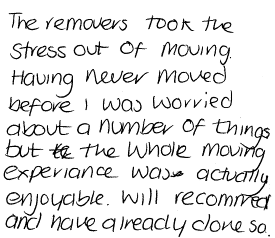 The removers took the
stress out of moving.
Having never moved
before I was worried
about a number of things
but the whole moving
experiance was actually
enjoyable. Will recommed
and have already done so.